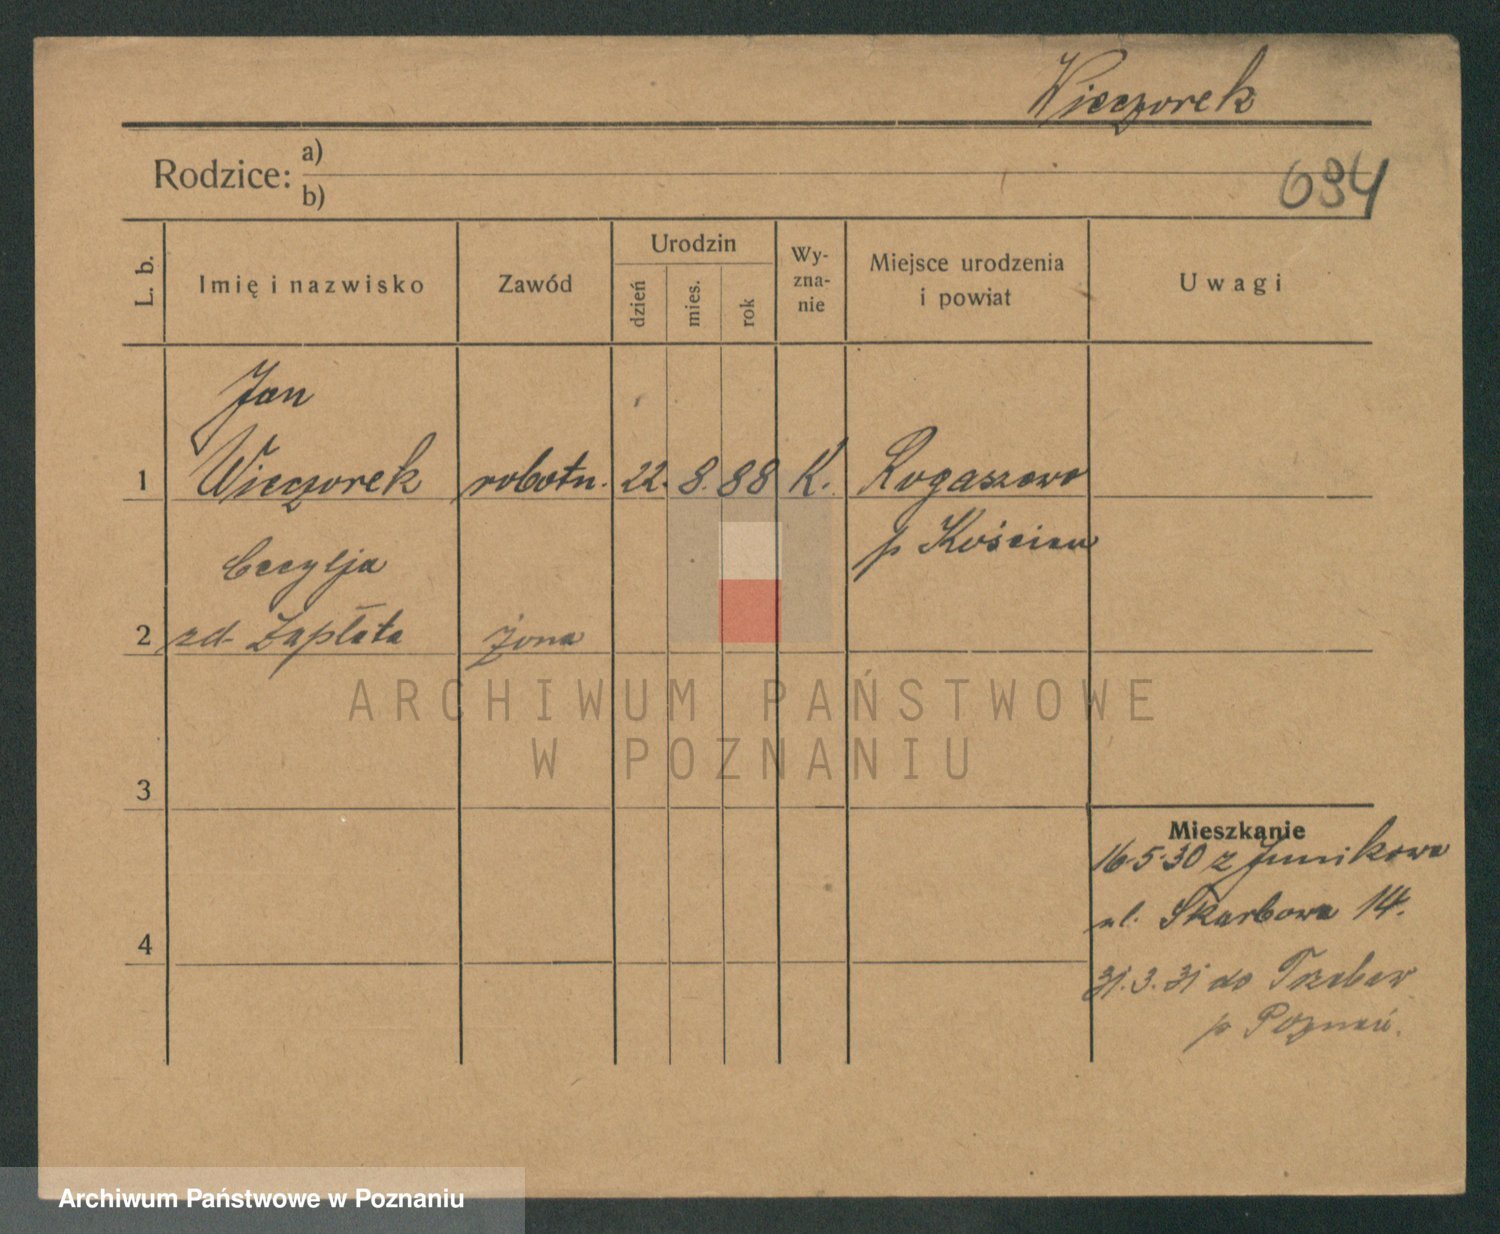 Wieczorek
Rodzice: a)
b)
634
L. b.
Imię i nazwisko
Zawód
Urodzin
dzień
mies.
rok
Wy-
zna-
nie
Miejsce urodzenia
i powiat
Uwagi
Jan
1 Wieczorek robotn. 22. 8. 88 K. Rogaszewo
p Kościan
Cecylja
2 zd. Zapłata żona
ARCHIWUM PAŃSTWOWE
W POZNANIU
3
Mieszkanie
16.5.30 z Junikowa
ul. Skarbowa 14.
4
31.3.31 do Trzebaw
p Poznań.
Archiwum Państwowe w Poznaniu